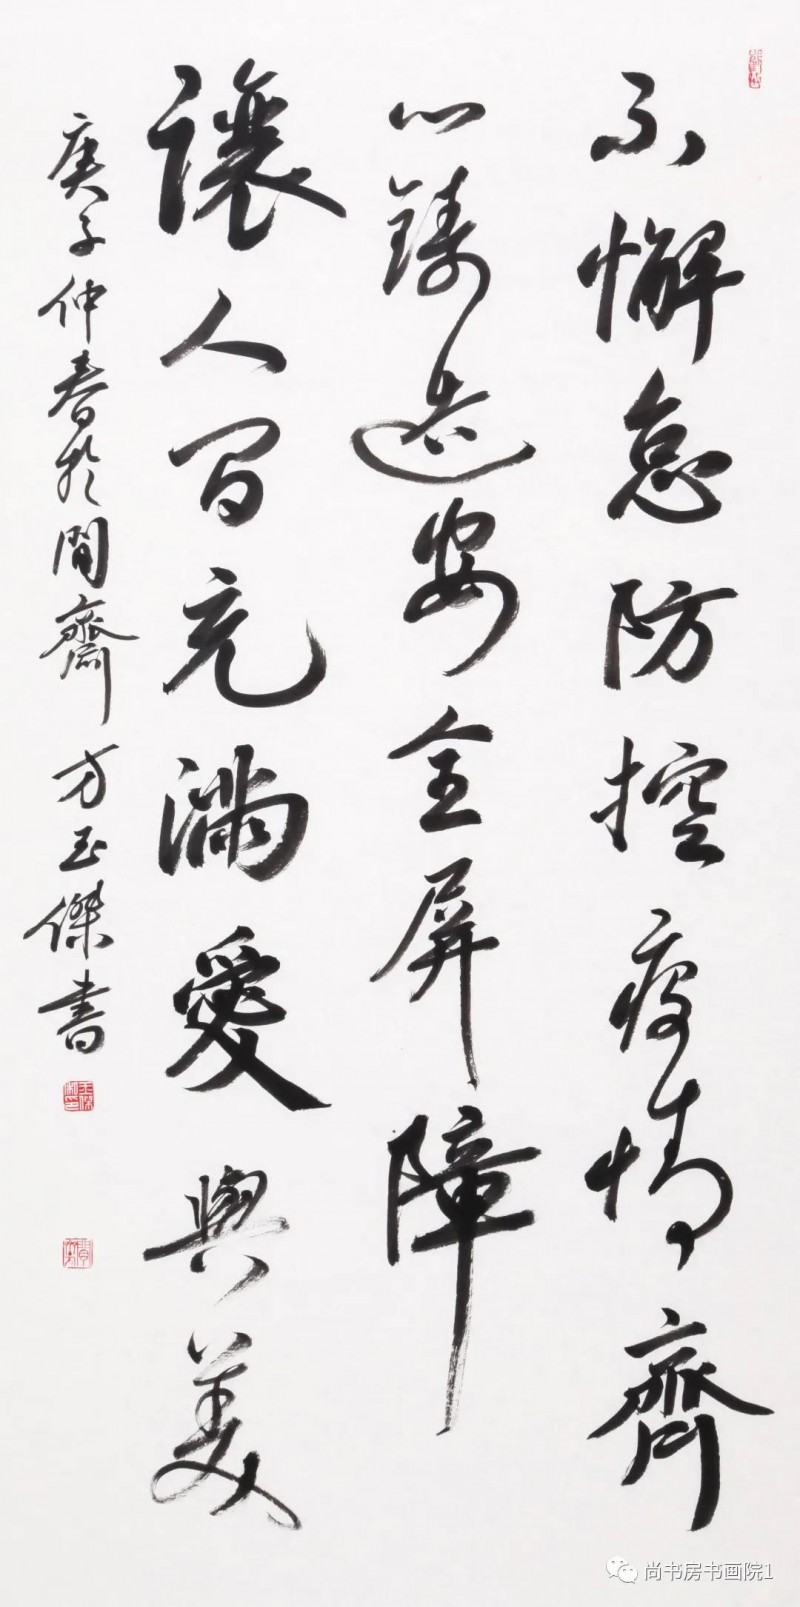 不懈怠防控疫情齊
心鑄造安全屏障
讓人间充滿愛與美
庚子仲春於閒齋方玉傑書
尚书房书画院1